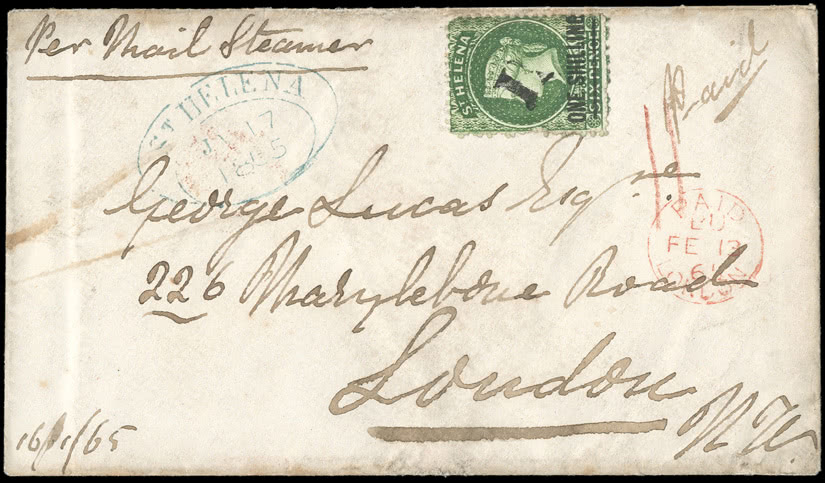 Per Mail Steamer
ST HELENA
JA 17
1865
ST HELENA
ONE SHILLING
SIX PENCE
Paid
PAID
LU
FE 13
LONDON
George Lucas Esqre
226 Marylebone Road
London
N.W.
16/1/65